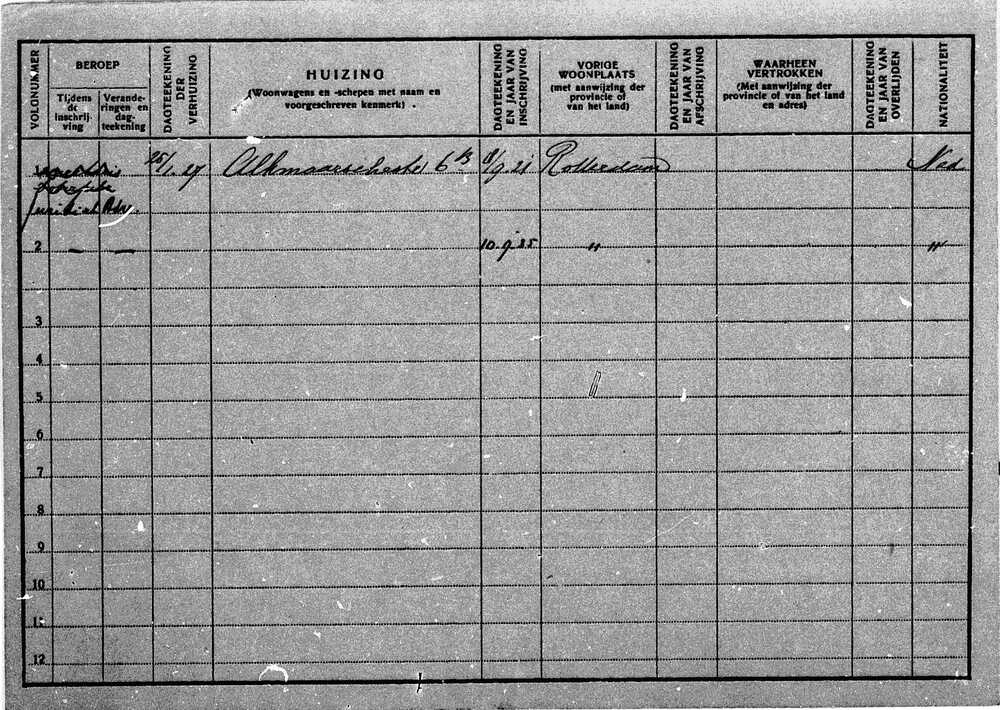 VOLGNUMMER
BEROEP
Tijdens
de
inschrij-
ving
Verande-
ringen en
dag-
teekening
DAGTEEKENING
DER
VERHUIZING
HUIZING
(Woonwagens en -schepen met naam en
voorgeschreven kenmerk) .
DAGTEEKENING
EN JAAR VAN
INSCHRIJVING
VORIGE
WOONPLAATS
(met aanwijzing der
provincie of
van het land)
DAGTEEKENING
EN JAAR VAN
AFSCHRIJVING
WAARHEEN
VERTROKKEN
(Met aanwijzing der
provincie of van het land
en adres)
DAGTEEKENING
EN JAAR VAN
OVERLIJDEN
NATIONALITEIT
1
25/1.27 Alkmaarschestr 6 8/9.21 Rotterdam Ned
2 — — 10.9.25 " "
3
4
5
6
7
8
9
10
11
12